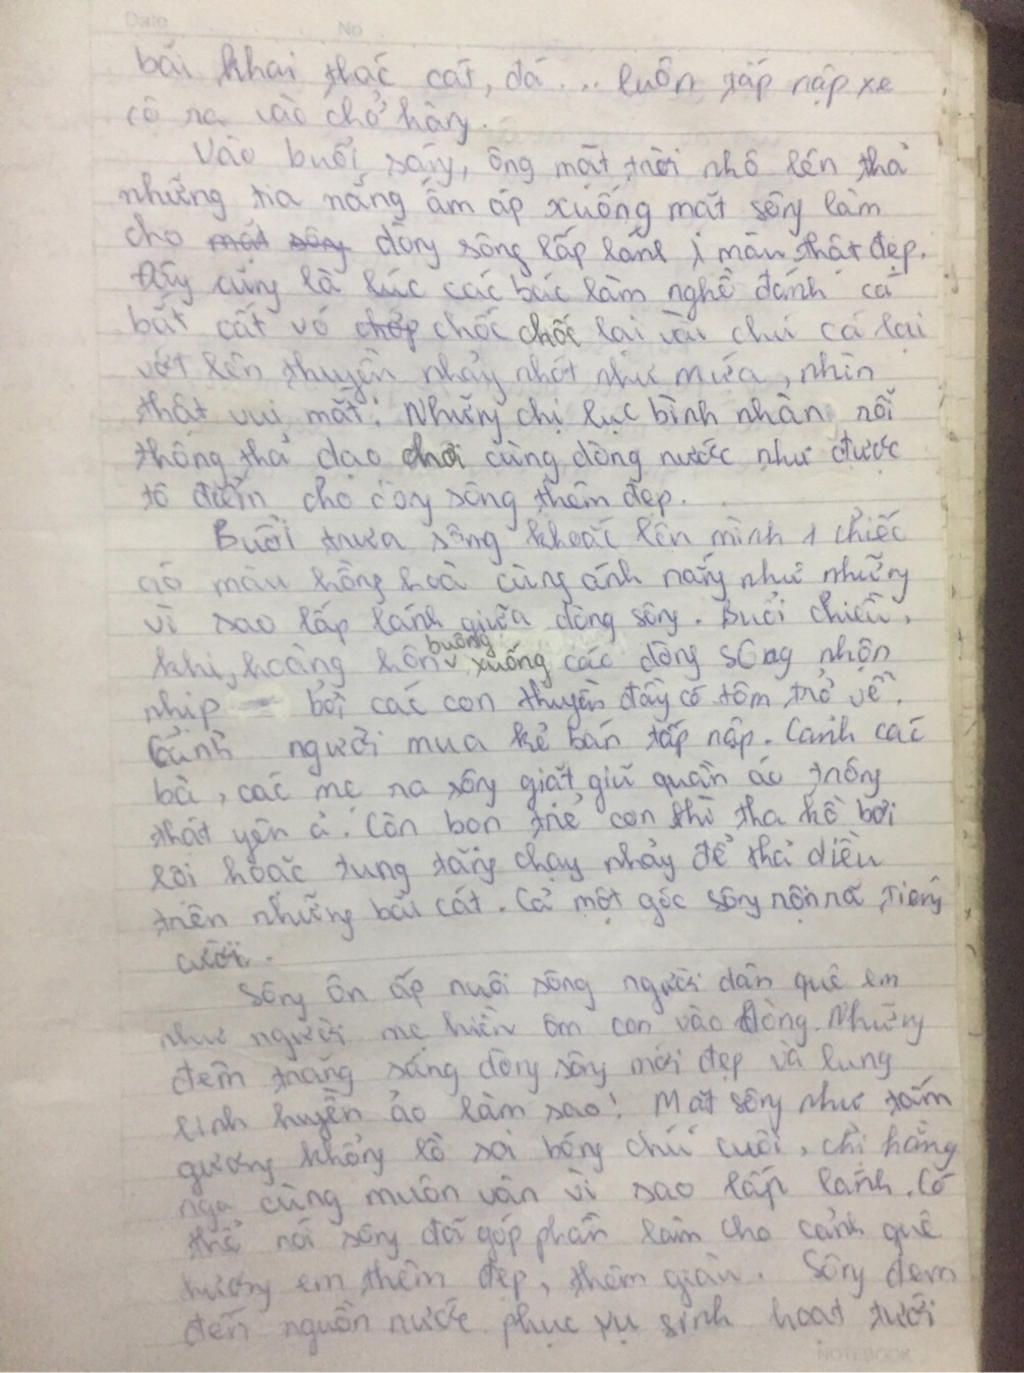 Date No
bãi khai thác cát, đá... luôn tấp nập xe
cộ ra vào chở hàng.
Vào buổi sáng, ông mặt trời nhô lên thả
những tia nắng ấm áp xuống mặt sông làm
cho mặt sông dòng sông lấp lánh 1 màu thật đẹp.
Đây cũng là lúc các bác làm nghề đánh cá
bắt cất vó chốc chốc lại vài chú cá lại
vớt lên thuyền nhảy nhót như múa, nhìn
thật vui mắt. Những chị lục bình nhàn rỗi
thông thả dạo chơi cùng dòng nước như được
tô điểm cho dòng sông thêm đẹp.
Buổi trưa sông khoác lên mình 1 chiếc
áo màu hồng hoà cùng ánh nắng như những
vì sao lấp lánh giữa dòng sông. Buổi chiều,
khi, hoàng hôn buông xuống các dòng sông nhộn
nhịp bởi các con thuyền đầy cá tôm trở về.
Cảnh người mua kẻ bán tấp nập. Cảnh các
bà, các mẹ ra sông giặt giũ quần áo trông
thật yên ả. Còn bọn trẻ con thì tha hồ bơi
lội hoặc tung tăng chạy nhảy để thả diều
trên những bãi cát. Cả một góc sông rộn rã tiếng
cười.
Sông ôn ấp nuôi sông người dân quê em
như người mẹ hiền ôm con vào lòng. Những
đêm trăng sáng dòng sông mới đẹp và lung
linh huyền ảo làm sao! Mặt sông như tấm
gương khổng lồ soi bóng chú cuội, chị hằng
nga cùng muôn vàn vì sao lấp lánh. Có
thể nói sông đã góp phần làm cho cảnh quê
hương em thêm đẹp, thêm giàu. Sông đem
đến nguồn nước phục vụ sinh hoạt tưới
NOTEBOOK